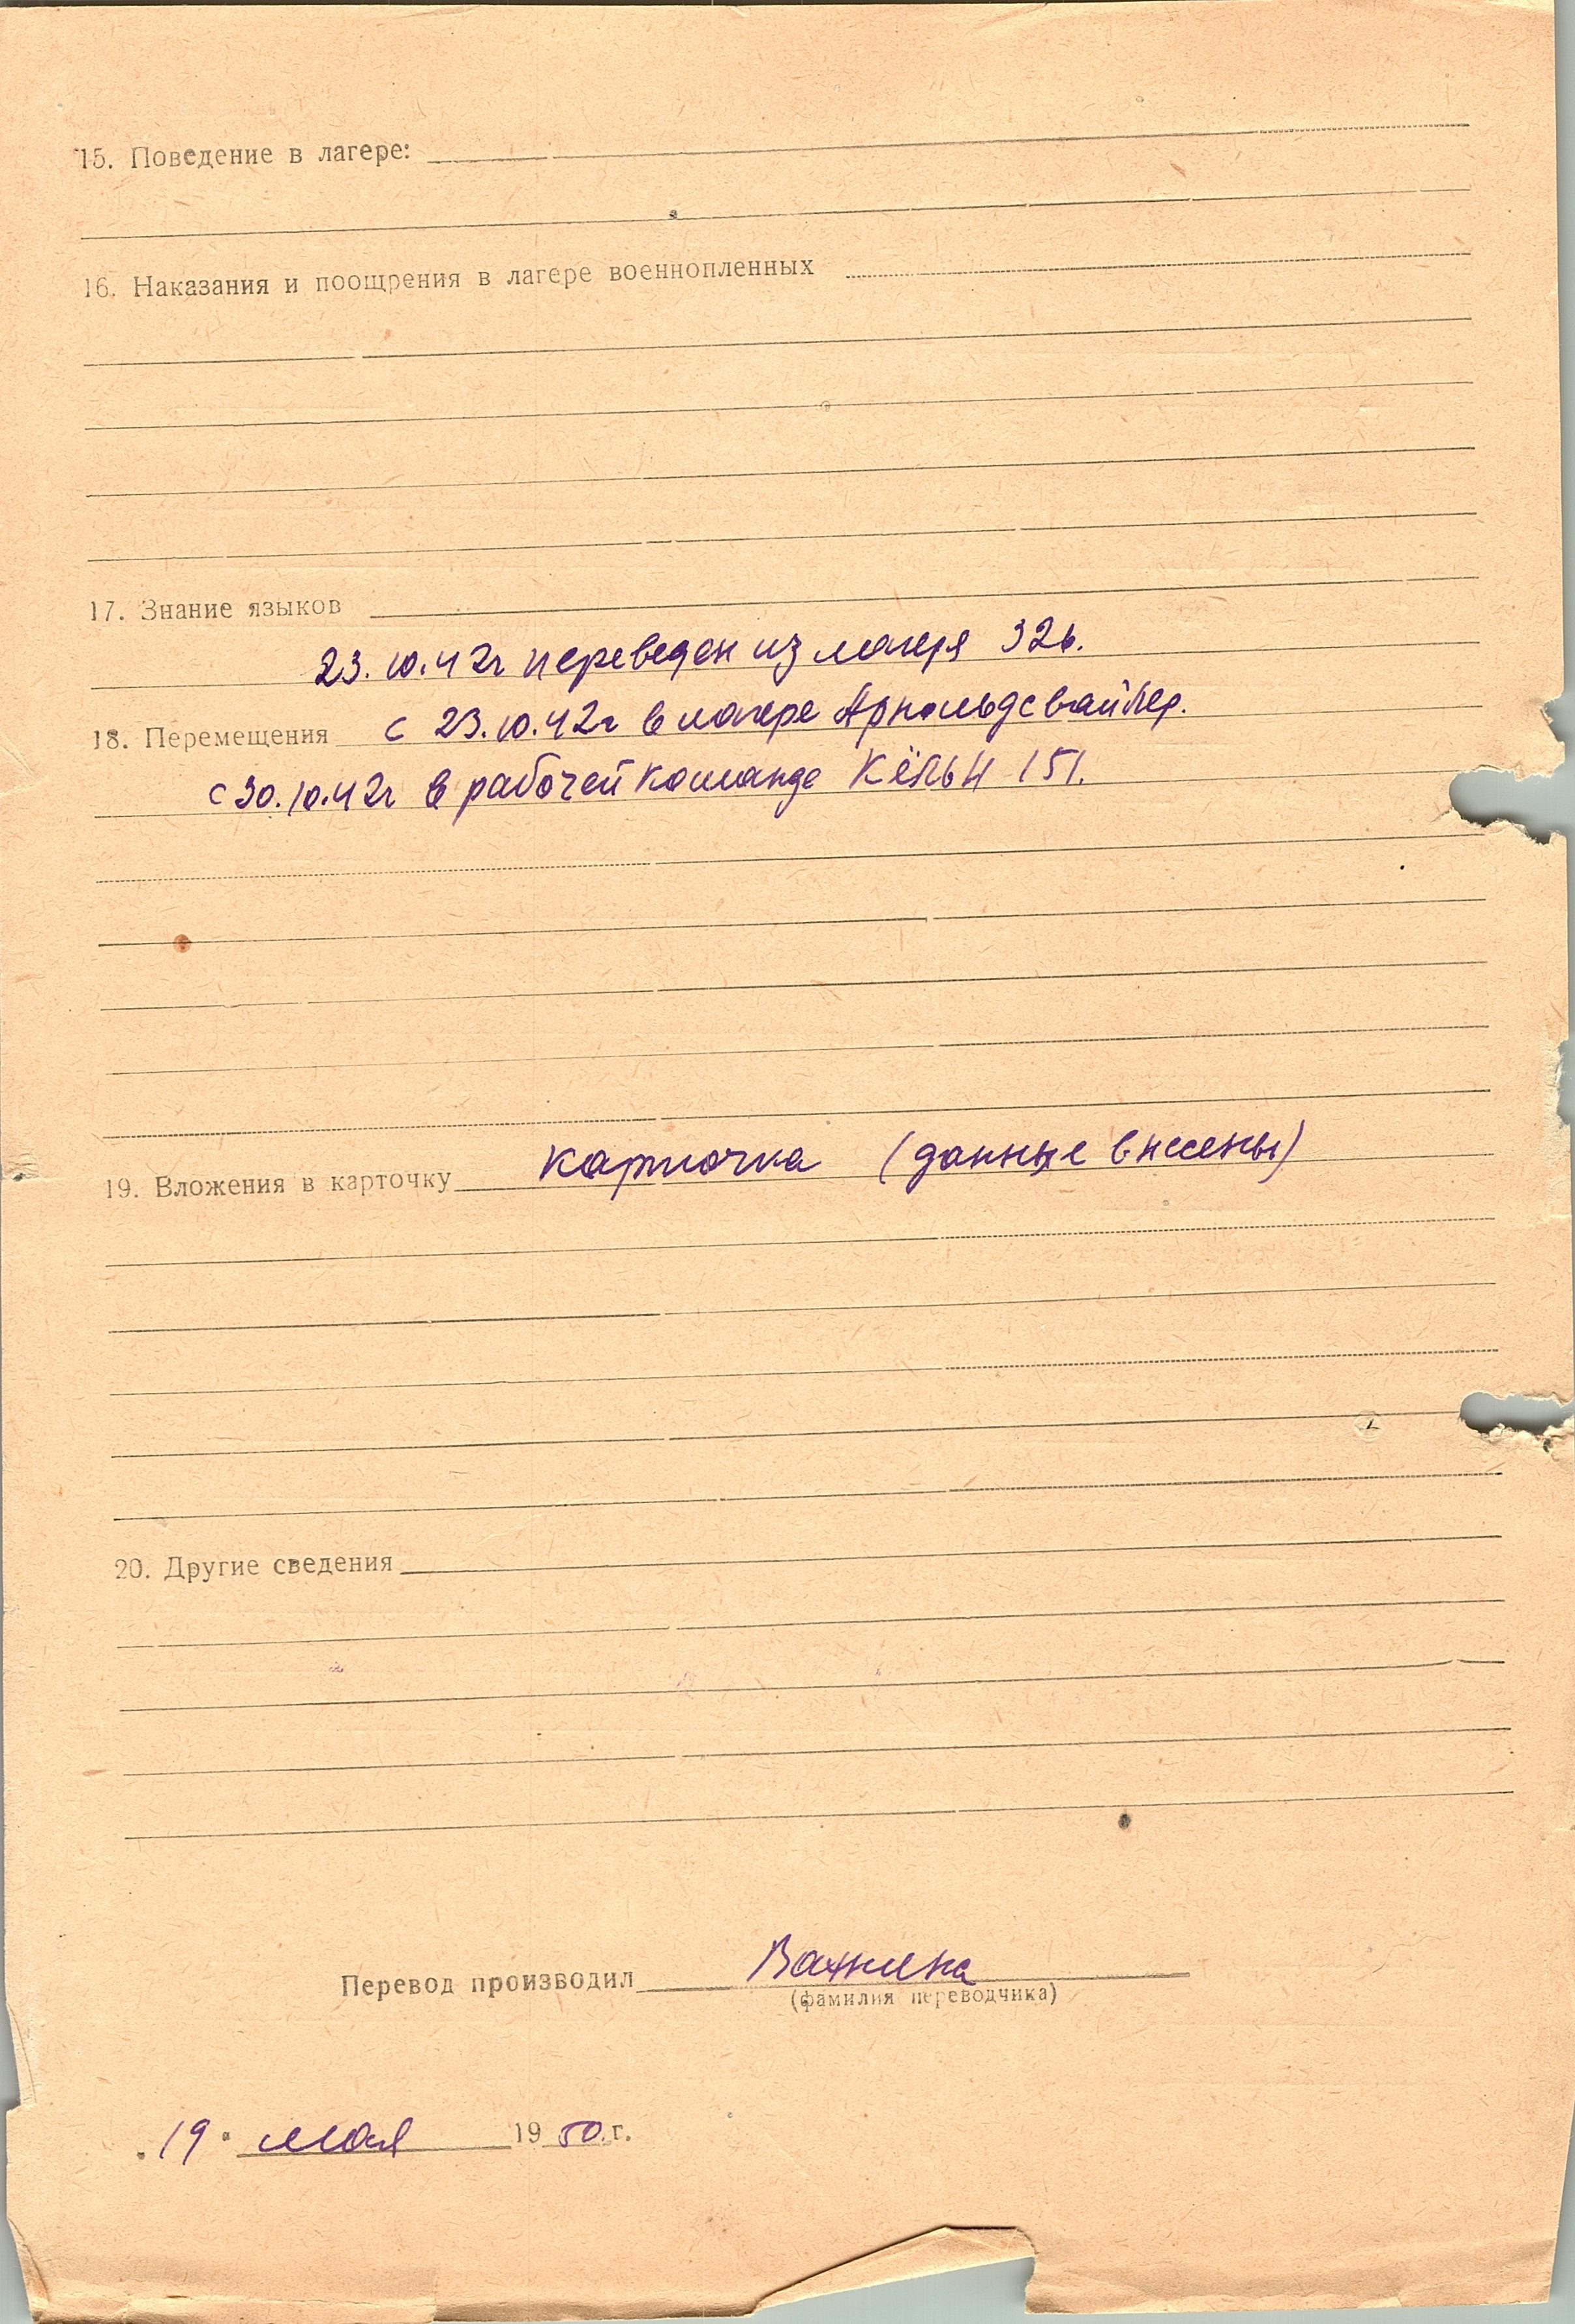 15. Поведение в лагере:
16. Наказания и поощрения в лагере военнопленных
17. Знание языков
23.10.42г переведен из лагеря 326.
18. Перемещения с 23.10.42г в лагере Арнольдсвайлер.
с 30.10.42г в рабочей команде Кёльн 151.
19. Вложения в карточку карточка (данные внесены)
20. Другие сведения
Перевод производил
(фамилия переводчика)
"19" мая 1950 г.